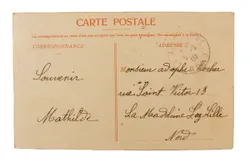 CARTE POSTALE
CORRESPONDANCE
ADRESSE
Souvenir
Mathilde
Monsieur adolphe
rue Saint Victor 13
La Madeleine Lez Lille
Nord